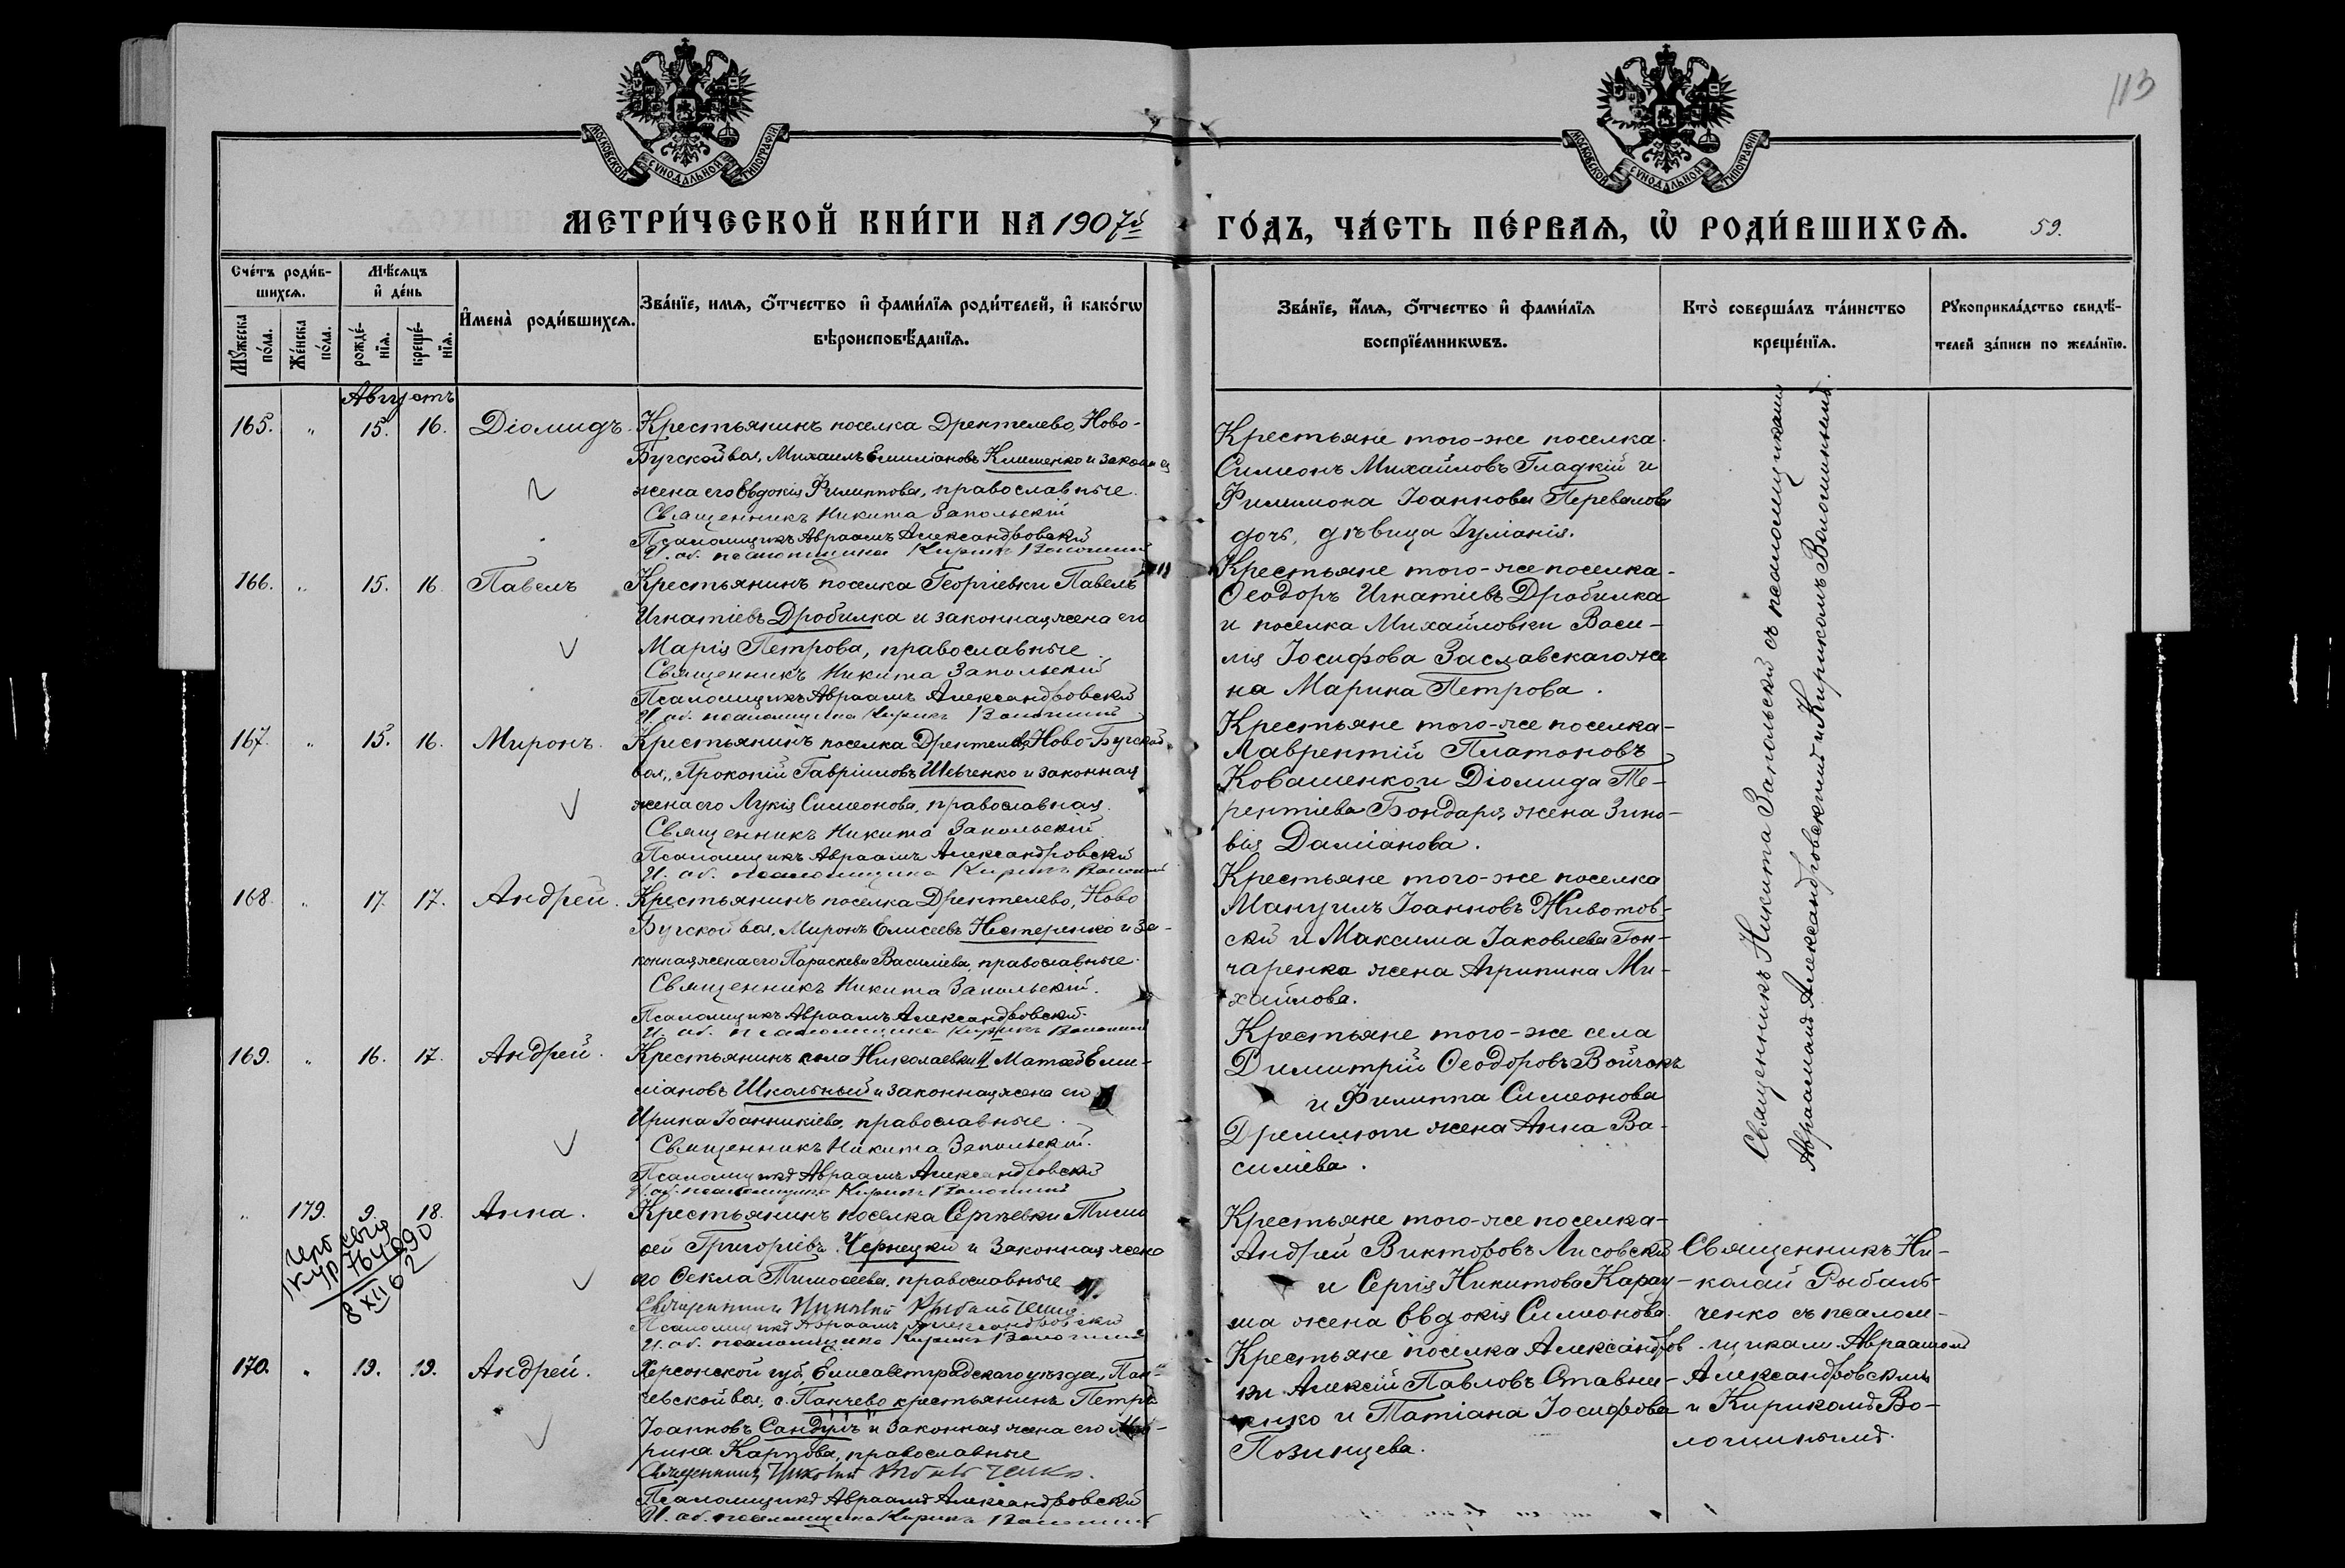 113
МОСКОВСКОЙ СУНОДАЛЬНОЙ ТИПОГРАФІИ
МОСКОВСКОЙ СУНОДАЛЬНОЙ ТИПОГРАФІИ
МЕТРИ́ЧЕСКОЙ КНИ́ГИ НА 1907й
ГО́ДЪ, ЧА́СТЬ ПЕ́РВАѦ, Ѡ҆ РОДИ́ВШИХСѦ. 59.
Сче́тъ роди́в-
шихсѧ.
Мꙋ́жеска по́ла.
Же́нска по́ла.
Мѣ́сѧцъ
и҆ де́нь
рожде́-
нїѧ.
креще́-
нїѧ.
И҆мена̀ роди́вшихсѧ.
Зва́нїе, имѧ, ѻ҆́тчество и҆ фами́лїѧ роди́телей, и҆ како́гѡ
вѣроисповѣ́данїѧ.
Зва́нїе, и҆́мѧ, ѻ҆́тчество и҆ фами́лїѧ
воспрїе́мникѡвъ.
Кто̀ соверша́лъ та́инство
креще́нїѧ.
Рꙋкоприкла́дство свидѣ́-
телей за́писи по жела́нїю.
Августъ
165. „ 15. 16. Діомидъ.
Крестьянинъ поселка Дрентелево, Ново-
Бугской вол, Михаилъ Емиліановъ Клименко и законная
жена его Евдокія Филиппова, православные.
Священникъ Никита Запольскій
Псаломщикъ Авраамъ Александровскій
И. об. псаломщика Кирикъ Волошинъ
Крестьяне того-же поселка
Симеонъ Михайловъ Гладкій и
Филимона Іоаннова Перевалова
дочь, дѣвица Іуліанія.
166. „ 15. 16 Павелъ
Крестьянинъ поселка Георгіевки Павелъ
Игнатіевъ Дробилка и законная жена его
Марія Петрова, православные.
Священникъ Никита Запольскій
Псаломщикъ Авраамъ Александровскій
И. об. псаломщика Кирикъ Волошинъ
Крестьяне того-же поселка-
Ѳеодоръ Игнатіевъ Дробилка
и поселка Михайловки Васи-
лія Іосифова Заславскаго же
на Марина Петрова.
167. „ 15. 16. Миронъ.
Крестьянинъ поселка Дрентелево, Ново-Бугской
вол., Прокопій Гавріиловъ Шевченко и законная
жена его Лукія Симеонова, православная.
Священникъ Никита Запольскій
Псаломщикъ Авраамъ Александровскій
И. об. псаломщика Кирикъ Волошинъ
Крестьяне того-же поселка-
Лаврентій Платоновъ
Коваленко и Діомида Те-
рентіева Бондаря жена Зино-
вія Даміанова.
168. „ 17. 17. Андрей.
Крестьянинъ поселка Дрентелево, Ново
Бугской вол, Миронъ Елисеевъ Нестеренко и за-
конная жена его Параскева Василіева, православные.
Священникъ Никита Запольскій.
Псаломщикъ Авраамъ Александровскій
И. об. псаломщика Кирикъ Волошинъ
Крестьяне того-же поселка
Мануилъ Іоанновъ Животов-
скій и Максима Іаковлева Гон-
чаренка жена Агрипина Ми-
хаилова.
169. „ 16. 17. Андрей.
Крестьянинъ села Николаевки Матѳей Еми-
ліановъ Школьный и законная жена его
Ирина Іоанникіева, православные.
Священникъ Никита Запольскій.
Псаломщикъ Авраамъ Александровскій
И. об. псаломщика Кирикъ Волошинъ
Крестьяне того-же села
Димитрій Ѳеодоровъ Войчокъ
и Филиппа Симеонова
Дремлюги жена Анна Ва-
силіева.
Священникъ Никита Запольскій съ псаломщиками
Авраамомъ Александровскимъ и Кирикомъ Волошинымъ.
„ 179. 9. 18. Анна.
764890
8 XII 62
Крестьянинъ поселка Сергѣевки Тимо
ѳей Григоріевъ Чернецкій и законная жена
его Ѳекла Тимоѳеева, православные
Священникъ Николай Рыбальченко
Псаломщикъ Авраамъ Александровскій
И. об. псаломщика Кирикъ Волошинъ
Крестьяне того-же поселка-
Андрей Викторовъ Лисовскій
и Сергія Никитова Карау-
ша жена Евдокія Симеонова.
Священникъ Ни-
колай Рыбаль-
ченко съ псалом-
щикам. Авраамомъ
Александровскимъ
и Кирикомъ Во-
лошинымъ.
170. „ 19. 19. Андрей.
Херсонской губ, Елисаветградскаго уѣзда, Пан-
чевской вол, с. Панчево крестьянинъ Петръ
Іоанновъ Сандулъ и законная жена его Ма-
рина Карпова, православные
Священникъ Николай Рыбальченко.
Псаломщикъ Авраамъ Александровскій
И. об. псаломщика Кирикъ Волошинъ
Крестьяне поселка Александров
ки Алексій Павловъ Ставни-
ченко и Татіана Іосифова
Позинцева.